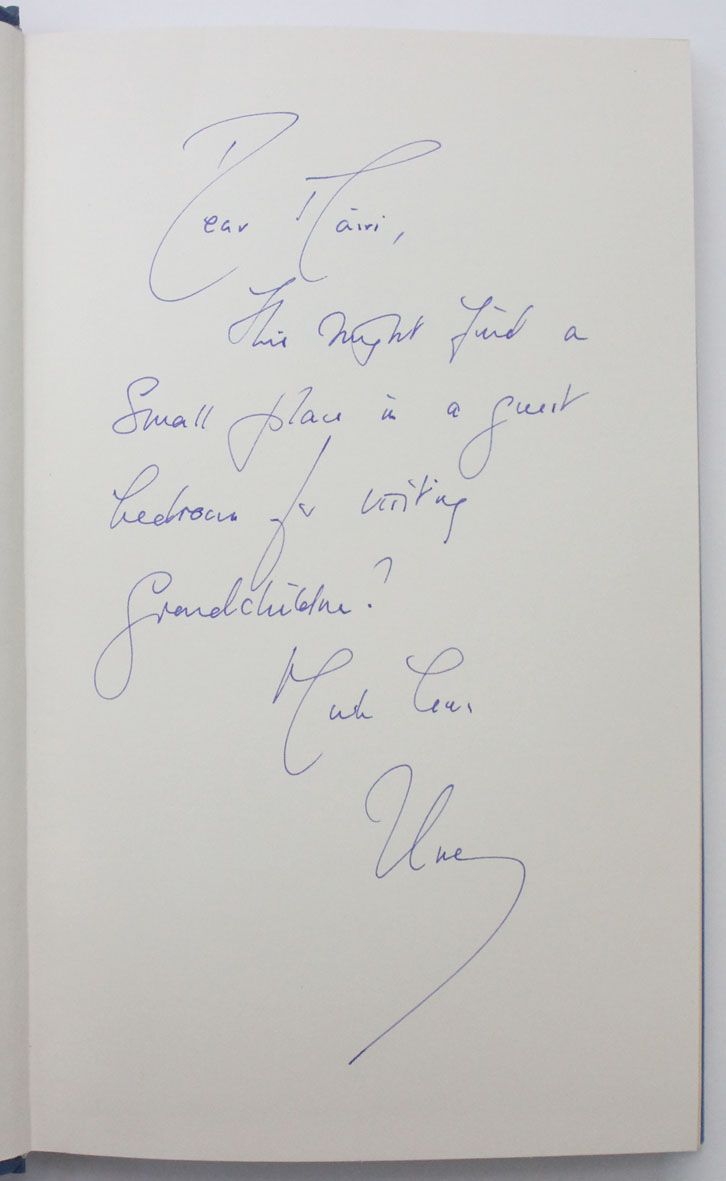 Dear Màiri,
This might find a
small place in a guest
bedroom for visiting
Grandchildren?
Much love,